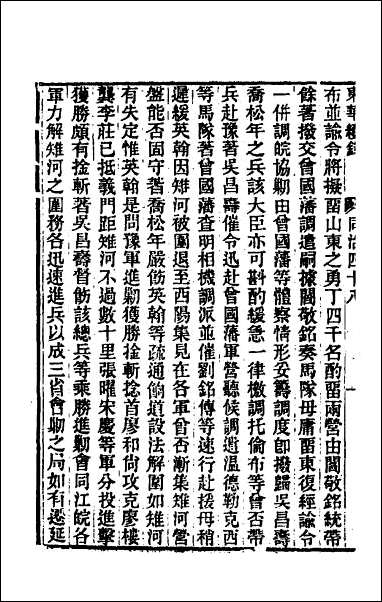 東華續錄　同治四十八
布並諭令將擬留山東之勇丁四千名酌留兩營由閻敬銘統帶
餘著撥交曾國藩調遣嗣據閻敬銘奏馬隊毋庸留東復經諭令
一併調皖協剿由曾國藩等體察情形妥籌調度卽撥歸吳昌壽
喬松年之兵該大臣亦可斟酌緩急一律檄調托倫布等曾否帶
兵赴豫著吳昌壽催令迅赴曾國藩軍營聽候調遣溫德勒克西
等馬隊著曾國藩查明相機調派並催劉銘傳等速行赴援毋稍
遲緩英翰因雉河被圍退至西陽集見在各軍曾否漸集雉河營
盤能否固守著喬松年嚴飭英翰等疏通餉道設法解圍如雉河
有失定惟英翰是問豫軍進剿獲勝擒斬捻首廖和尚攻克廖樓
龔李莊已抵義門距雉河不過數十里張曜宋慶等軍分投進擊
獲勝頗有擒斬著吳昌壽督飭該總兵等乘勝進剿會同江皖各
軍力解雉河之圍務各迅速進兵以成三省會剿之局如有遷延